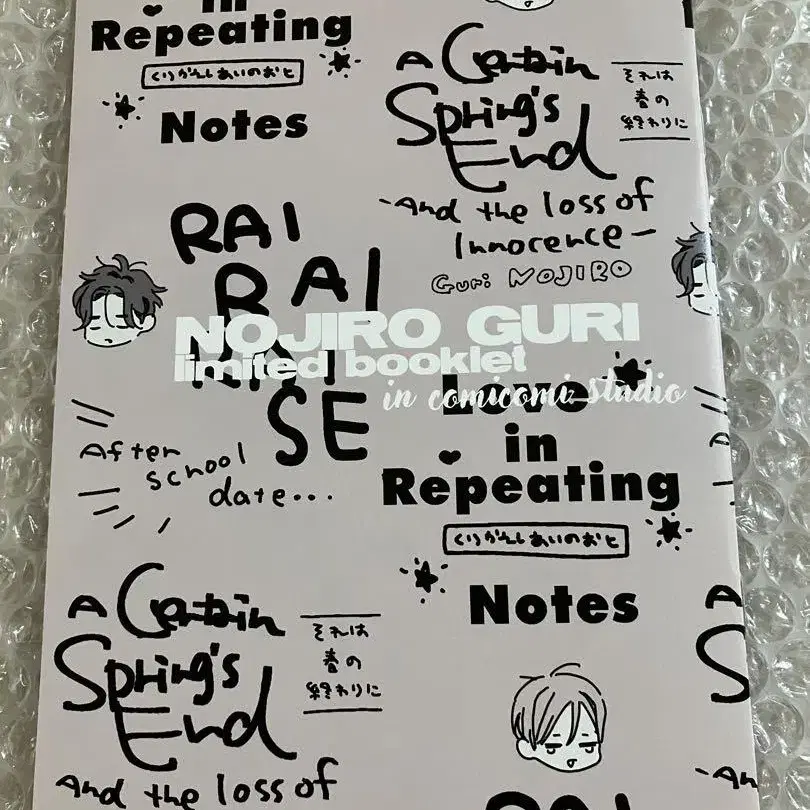 in
Repeating
くりかえしあいのおと
Notes
A Certain
Spring's
End
それは
春の
終わりに
-And the loss of
Innocence-
Guri NOJIRO
RAI
RAI
RAI
SE
NOJIRO GURI
limited booklet
in comicomi studio
After
school
date...
Love
in
Repeating
くりかえしあいのおと
Notes
A Certain
Spring's
End
それは
春の
終わりに
And the loss of
A
S
-An
RAI